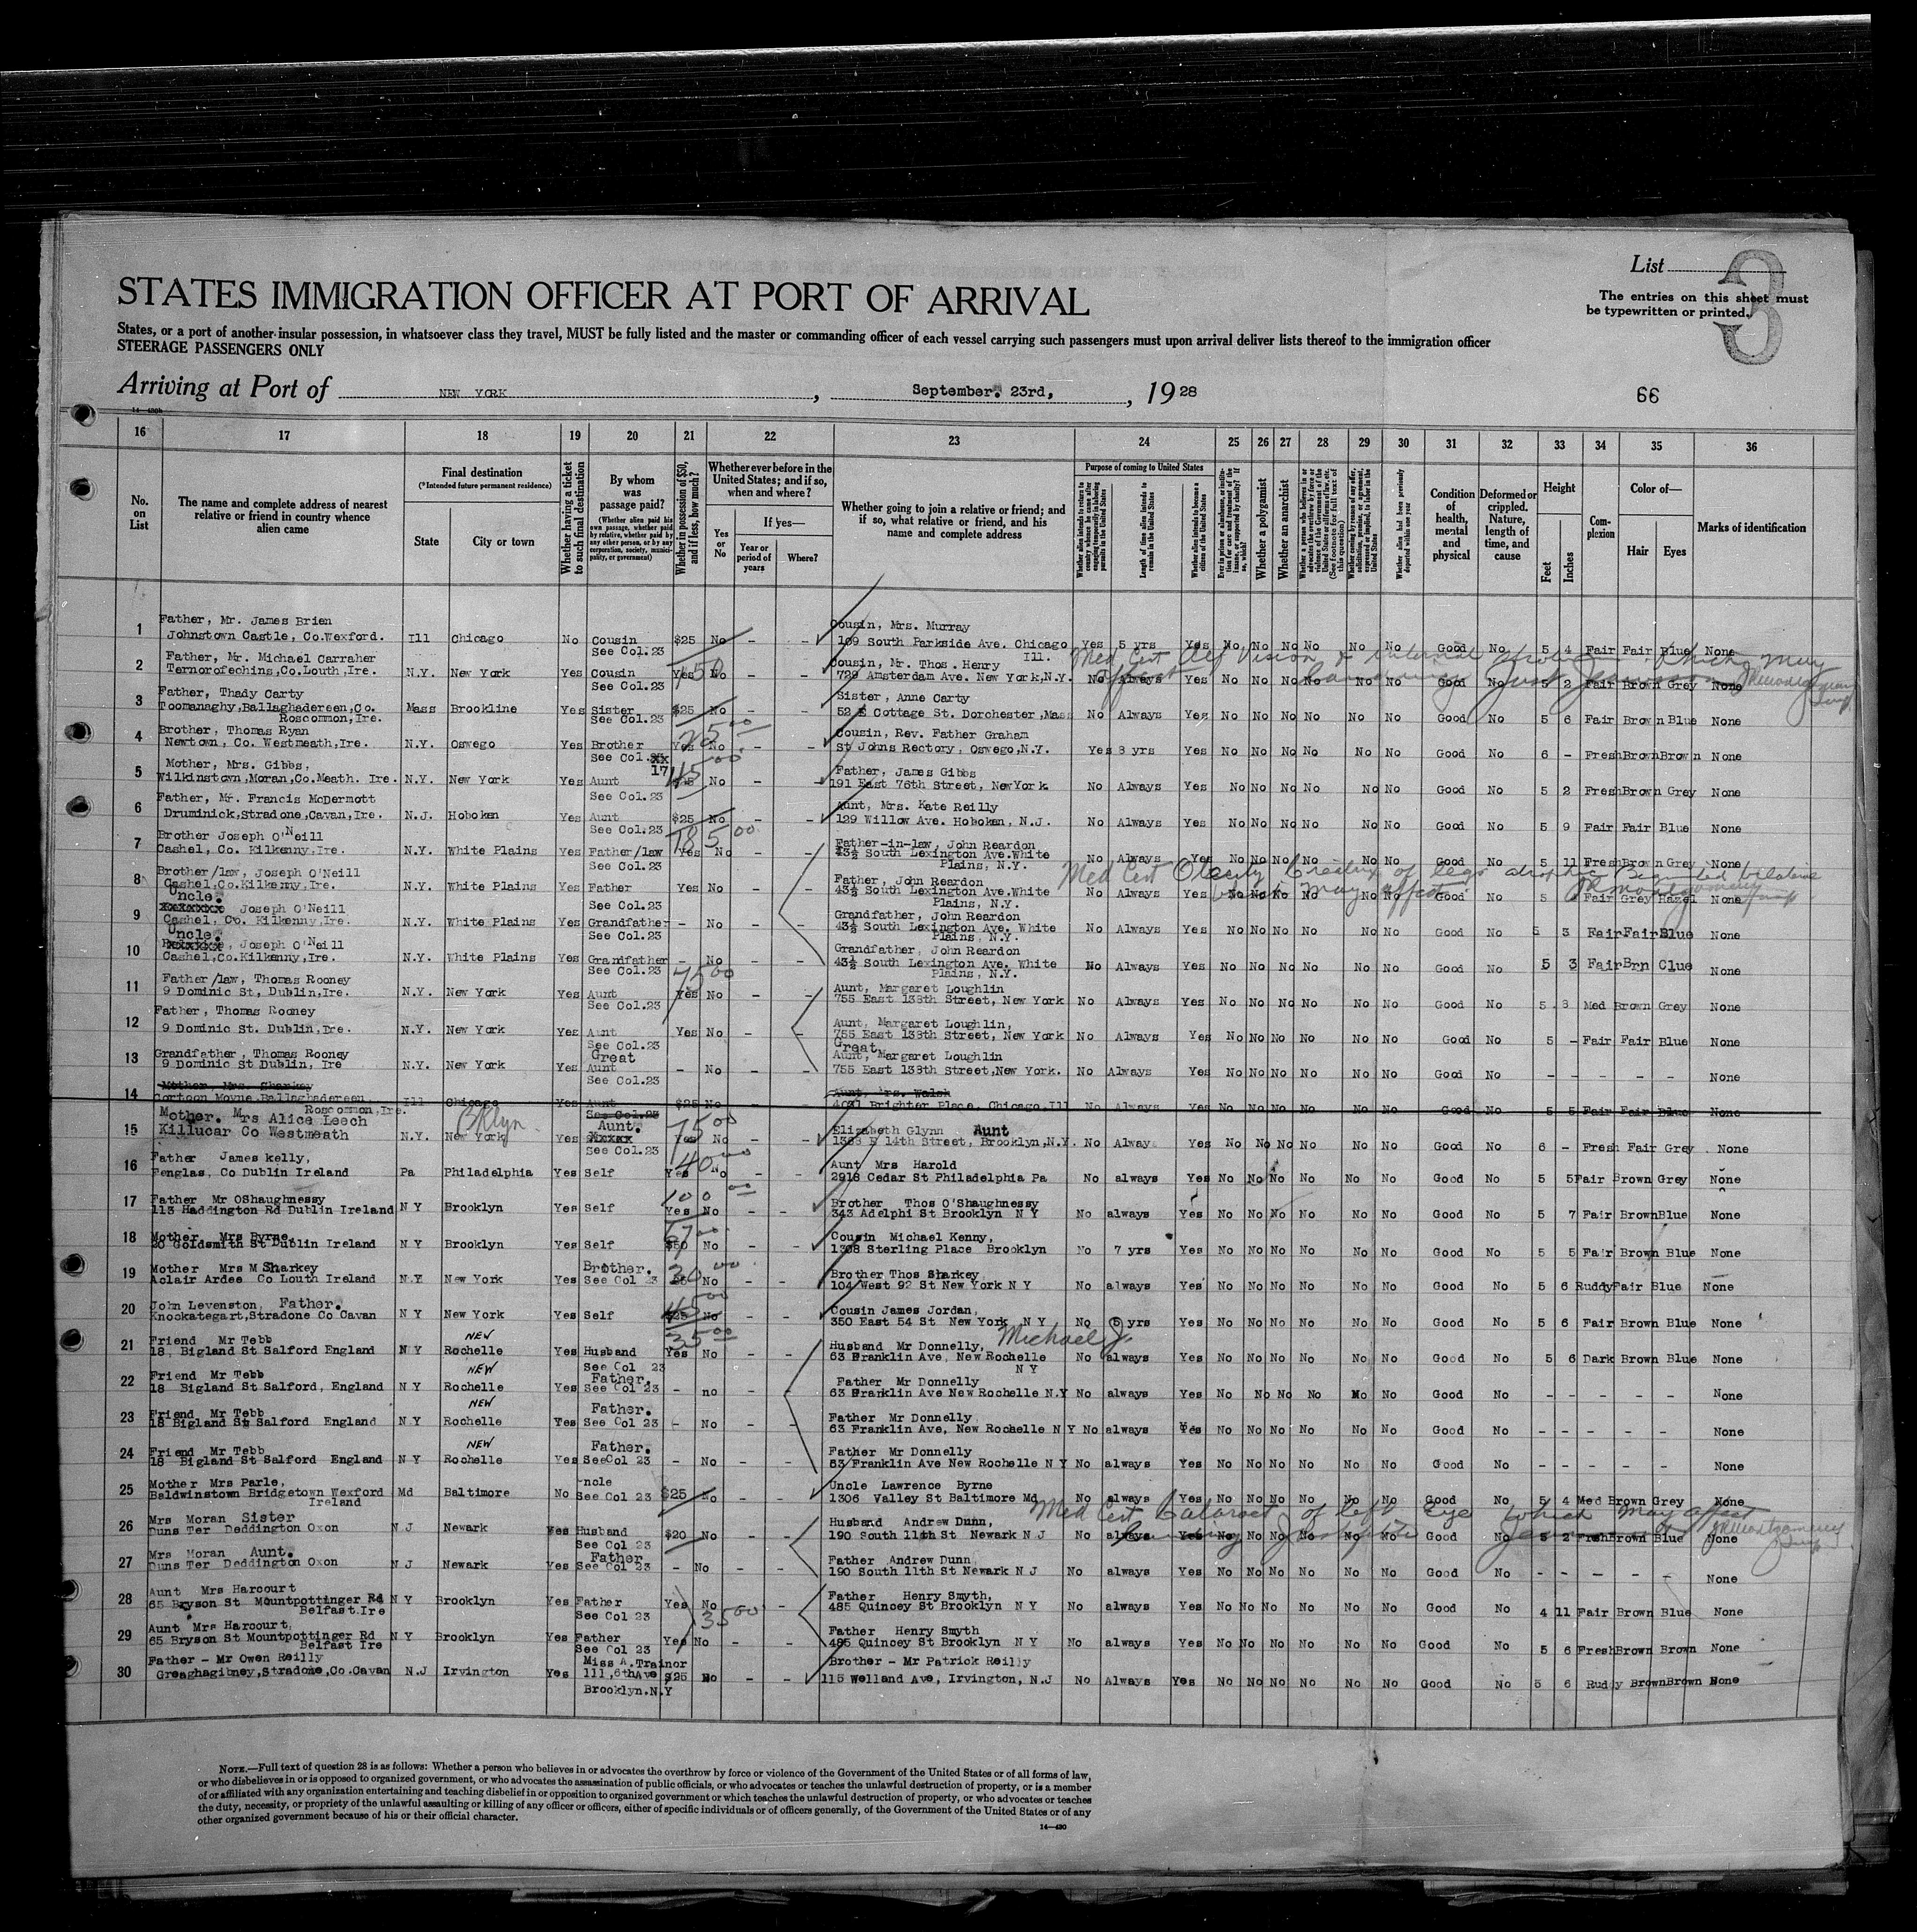 List
3
The entries on this sheet must
be typewritten or printed.
STATES IMMIGRATION OFFICER AT PORT OF ARRIVAL
States, or a port of another insular possession, in whatsoever class they travel, MUST be fully listed and the master or commanding officer of each vessel carrying such passengers must upon arrival deliver lists thereof to the immigration officer
STEERAGE PASSENGERS ONLY
Arriving at Port of NEW YORK, September. 23rd, , 19 28
66
16 17 18 19 20 21 22 23 24 25 26 27 28 29 30 31 32 33 34 35 36
No. on List
The name and complete address of nearest relative or friend in country whence alien came
Final destination
(*Intended future permanent residence)
State
City or town
Whether having a ticket to such final destination
By whom was passage paid?
(Whether alien paid his own passage, whether paid by relative, whether paid by any other person, or by any corporation, society, municipality, or government)
Whether in possession of $50, and if less, how much?
Whether ever before in the United States; and if so, when and where?
Yes or No
If yes—
Year or period of years
Where?
Whether going to join a relative or friend; and if so, what relative or friend, and his name and complete address
Purpose of coming to United States
Length of time alien intends to remain in the United States
Whether alien intends to become a citizen of the United States
Whether a polygamist
Whether an anarchist
Condition of health, mental and physical
Deformed or crippled. Nature, length of time, and cause
Height
Feet
Inches
Complexion
Color of—
Hair
Eyes
Marks of identification
1 Father, Mr. James Brien
Johnstown Castle, Co.Wexford. Ill Chicago No Cousin See Col.23 $25 No – – Cousin, Mrs. Murray 109 South Parkside Ave. Chicago Ill. Yes 5 yrs Yes No No No No No No Good No 5 4 Fair Fair Blue None
2 Father, Mr. Michael Carraher
Ternorofechins,Co.Louth,Ire. N.Y. New York Yes Cousin See Col.23 Yes No – – Cousin, Mr. Thos. Henry 729 Amsterdam Ave. New York,N.Y. No Always Yes No No No No Good No 5 2 Fair Brown Grey None
3 Father, Thady Carty
Toomanaghy,Ballaghadereen,Co. Roscommon,Ire. Mass Brookline Yes Sister See Col.23 $25 No – – Sister, Anne Carty 52 E Cottage St. Dorchester,Mass No Always Yes No No No No No No Good No 5 6 Fair Brown Blue None
4 Brother, Thomas Ryan
Newtown, Co. Westmeath,Ire. N.Y. Oswego Yes Brother See Col.xx 17 Yes No – – Cousin, Rev. Father Graham St Johns Rectory, Oswego,N.Y. Yes 3 yrs Yes No No No No No No Good No 6 – Fresh Brown Brown None
5 Mother, Mrs. Gibbs,
Wilkinstown,Moran,Co.Meath. Ire. N.Y. New York Yes Aunt See Col.23 45 00 No – – Father, James Gibbs 191 East 76th Street, NewYork No Always Yes No No No No No No Good No 5 2 Fresh Brown Grey None
6 Father, Mr. Francis McDermott
Druminick,Stradone,Cavan,Ire. N.J. Hoboken Yes Aunt See Col.23 $25 No – – Aunt, Mrs. Kate Reilly 129 Willow Ave. Hoboken, N.J. No Always Yes No No No No No No Good No 5 9 Fair Fair Blue None
7 Brother Joseph O'Neill
Cashel, Co. Kilkenny,Ire. N.Y. White Plains Yes Father/law See Col.23 185 00 Yes No – – Father-in-law, John Reardon 43½ South Lexington Ave.White Plains, N.Y. No Always Yes No No No No No No Good No 5 11 Fresh Brown Grey None
8 Brother/law, Joseph O'Neill
Cashel,Co.Kilkenny,Ire. N.Y. White Plains Yes Father See Col.23 Yes No – – Father, John Reardon 43½ South Lexington Ave.White Plains, N.Y. No Always Yes Good No 5 Fair Grey Hazel None
9 Uncle. xxxxxxx Joseph O'Neill
Cashel, Co. Kilkenny,Ire. N.Y. White Plains Yes Grandfather See Col.23 – No – – Grandfather, John Reardon 43½ South Lexington Ave. White Plains, N.Y. No Always Yes No No No No No No Good No 5 3 Fair Fair Blue None
10 Uncle. Joseph O'Neill
Cashel,Co.Kilkenny,Ire. N.Y. White Plains Yes Grandfather See Col.23 – No – – Grandfather, John Reardon 43½ South Lexington Ave. White Plains, N.Y. No Always Yes No No No No No No Good No 5 3 Fair Brn Clue None
11 Father/law, Thomas Rooney
9 Dominic St, Dublin,Ire. N.Y. New York Yes Aunt See Col.23 75 00 Yes No – – Aunt, Margaret Loughlin 755 East 138th Street, New York No Always Yes No No No No No No Good No 5 3 Med Brown Grey None
12 Father, Thomas Rooney
9 Dominic St. Dublin,Ire. N.Y. New York Yes Aunt See Col.23 Yes No – – Aunt, Margaret Loughlin, 755 East 138th Street, New York No Always Yes No No No No No No Good No 5 – Fair Fair Blue None
13 Grandfather, Thomas Rooney
9 Dominic St Dublin, Ire N.Y. New York Yes Great Aunt See Col.23 – No – – Great Aunt, Margaret Loughlin 755 East 138th Street,New York. No Always Yes No No No No No No Good No – – – – – None
14 Mother, Mrs. Sharkey
Cortoon Moyne,Ballaghadereen, Roscommon,Ire. Ill Chicago Yes Aunt See Col.23 $25 No Aunt, Mrs. Walsh 4091 Brighter Place, Chicago,Ill No Always Yes No No No No No No Good No 5 5 Fair Fair Blue None
15 Mother. Mrs Alice Leech
Killucar Co Westmeath N.Y. New York Bklyn. Yes Aunt. xxxxx See Col.23 75 00 Yes No – – Elizabeth Glynn Aunt 1368 E 14th Street, Brooklyn,N.Y. No Alway Yes No No No No No No Good No 6 – Fresh Fair Grey None
16 Father James kelly,
Fenglas, Co Dublin Ireland Pa Philadelphia Yes Self 40 00 Yes No – – Aunt Mrs Harold 2918 Cedar St Philadelphia Pa No always Yes No No No No No No Good No 5 5 Fair Brown Grey None
17 Father Mr OShaughnessy
113 Haddington Rd Dublin Ireland N Y Brooklyn Yes Self 100 00 Yes No – – Brother Thos O'Shaughnessy 343 Adelphi St Brooklyn N Y No always Yes No No No No No No Good No 5 7 Fair Brown Blue None
18 Mother Mrs Byrne,
20 Goldsmith St Dublin Ireland N Y Brooklyn Yes Self $50 No – – Cousin Michael Kenny, 1368 Sterling Place Brooklyn No 7 yrs Yes No No No No No No Good No 5 5 Fair Brown Blue None
19 Mother Mrs M Sharkey
Aclair Ardee Co Louth Ireland N.Y. New York Yes Brother. See Col 23 30 00 No – – Brother Thos Sharkey, 104 West 92 St New York N Y No always Yes No No No No No No Good No 5 6 Ruddy Fair Blue None
20 John Levenston, Father.
Knockategart,Stradone Co Cavan N Y New York Yes Self 45 00 $25 No – – Cousin James Jordan, 350 East 54 St New York N Y No 5 yrs Yes No No No No No No Good No 5 6 Fair Brown Blue None
21 Friend Mr Tebb
18, Bigland St Salford England N Y NEW Rochelle Yes Husband See Col 23 35 00 Yes No – – Husband Mr Donnelly, Michael J. 63 Franklin Ave, New Rochelle N Y No always Yes No No No No No No Good No 5 6 Dark Brown Blue None
22 Friend Mr Tebb
18 Bigland St Salford, England N Y NEW Rochelle Yes Father. See Col 23 – no – – Father Mr Donnelly 63 Franklin Ave New Rochelle N.Y No always Yes No No No No No No Good No – – – – – None
23 Friend Mr Tebb
18 Bigland St Salford England N Y NEW Rochelle Yes Father. See Col 23 – No – – Father Mr Donnelly 63 Franklin Ave, New Rochelle N Y No always Yes No No No No No No Good No – – – – – None
24 Friend Mr Tebb
18 Bigland St Salford England N Y NEW Rochelle Yes Father. SeeCol 23 – No – – Father Mr Donnelly 63 Franklin Ave New Rochelle N Y No always Yes No No No No No No Good No – – – – – None
25 Mother Mrs Parle,
Baldwinstown Bridgetown Wexford Ireland Md Baltimore No Uncle See Col 23 $25 No – – Uncle Lawrence Byrne 1306 Valley St Baltimore Md No always Yes No No No No No No Good No 5 4 Med Brown Grey None
26 Mrs Moran Sister
Duns Ter Deddington Oxon N J Newark Yes Husband See Col 23 $20 No – – Husband Andrew Dunn, 190 South 11th St Newark N J No always Yes No No No No No No Good No 5 2 Fresh Brown Blue None
Med Cert Cataract of left Eye which may affect
27 Mrs Moran Aunt.
Duns Ter Deddington Oxon N J Newark Yes Father See Col 23 – No – – Father Andrew Dunn 190 South 11th St Newark N J No always Yes No No No No No No Good No – – – – – None
28 Aunt Mrs Harcourt
65 Bryson St Mountpottinger Rd Belfast.Ire N Y Brooklyn Yes Father See Col 23 Yes No 35 00 – Father Henry Smyth, 485 Quincey St Brooklyn N Y No always Yes No No No No No No Good No 4 11 Fair Brown Blue None
29 Aunt Mrs Harcourt,
65 Bryson St Mountpottinger Rd Belfast Ire N Y Brooklyn Yes Father See Col 23 Yes No – – Father Henry Smyth 485 Quincey St Brooklyn N Y No always Yes No No No No No No Good No 5 6 Fresh Brown Brown None
30 Father - Mr Owen Reilly
Greaghagibney,Stradone,Co.Cavan N.J Irvington Yes Miss A.Trainor 111,6thAve Brooklyn.N.Y $25 No – – Brother - Mr Patrick Reilly 115 Welland Ave, Irvington, N.J No Always Yes No No No No No No Good No 5 6 Ruddy Brown Brown None
NOTE.—Full text of question 28 is as follows: Whether a person who believes in or advocates the overthrow by force or violence of the Government of the United States or of all forms of law,
or who disbelieves in or is opposed to organized government, or who advocates the assassination of public officials, or who advocates or teaches the unlawful destruction of property, or is a member
of or affiliated with any organization entertaining and teaching disbelief in or opposition to organized government or which teaches the unlawful destruction of property, or who advocates or teaches
the duty, necessity, or propriety of the unlawful assaulting or killing of any officer or officers, either of specific individuals or of officers generally, of the Government of the United States or of any
other organized government because of his or their official character.
14—420